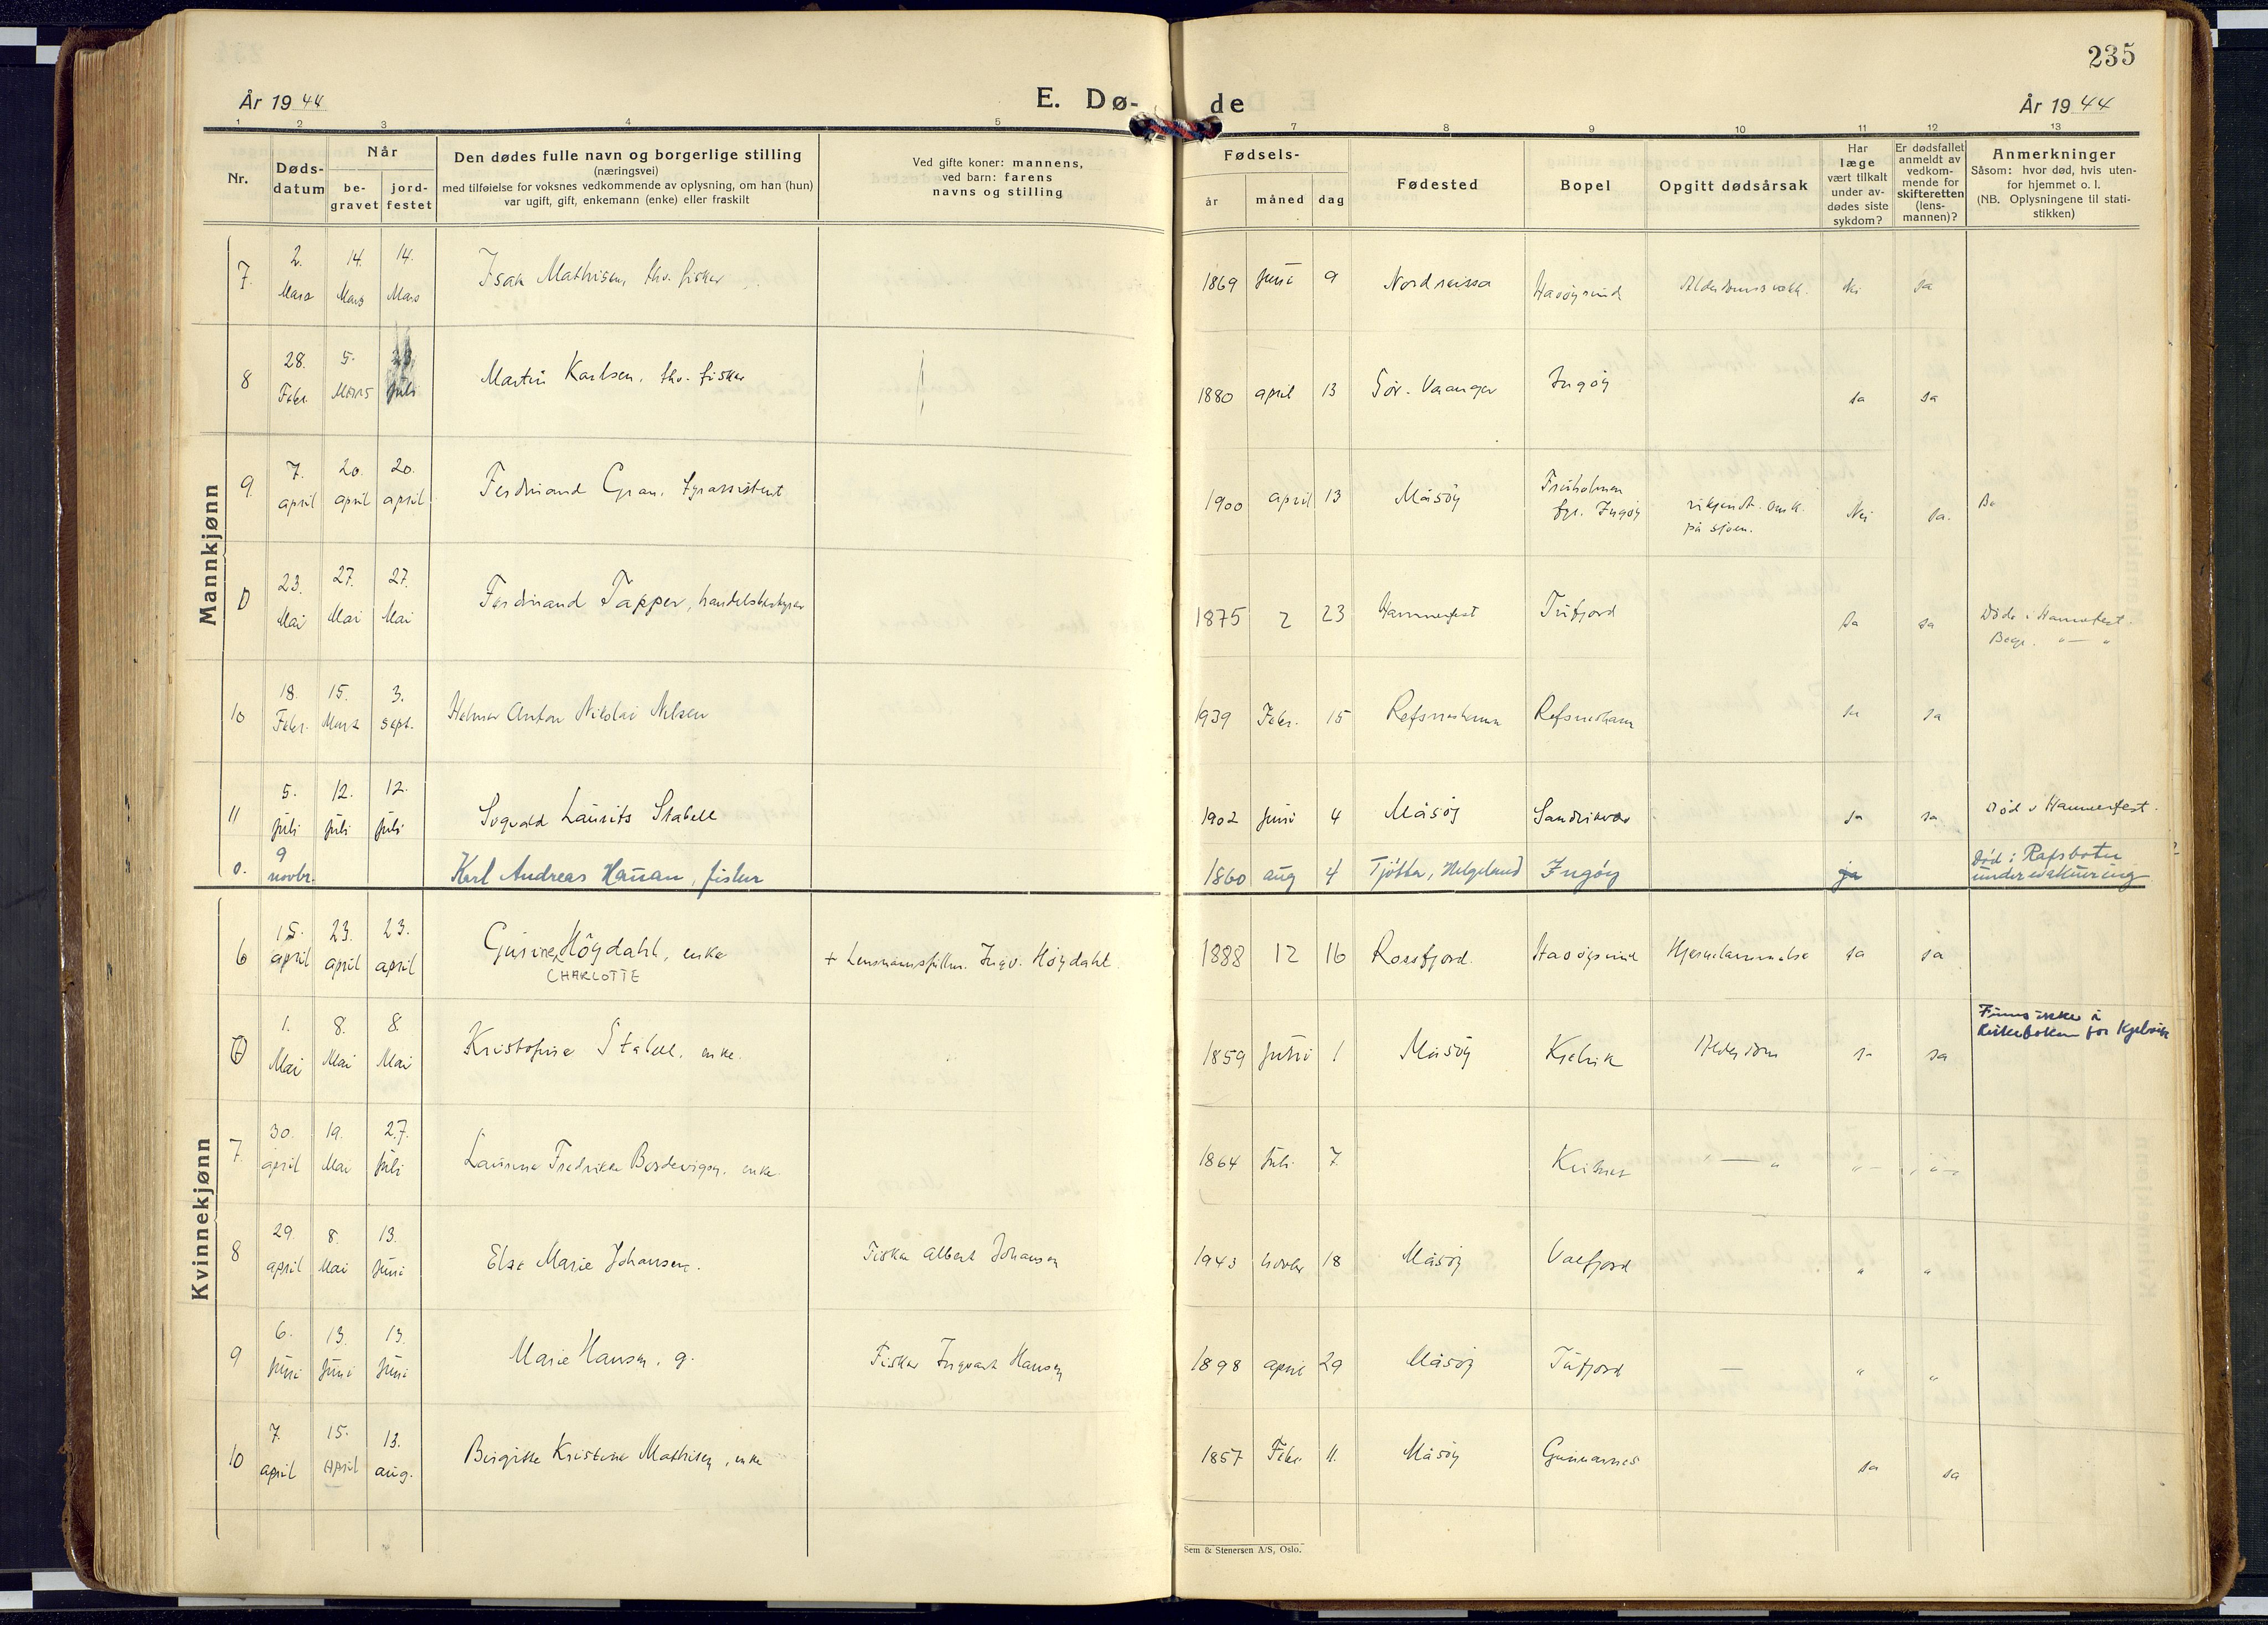 235
År 1944
E. Dø-
de
År 1944
1 2 3 4 5 7 8 9 10 11 12 13
Nr.
Døds-
datum
Når
be-
gravet
jord-
festet
Den dødes fulle navn og borgerlige stilling
(næringsvei)
med tilføielse for voksnes vedkommende av oplysning, om han (hun)
var ugift, gift, enkemann (enke) eller fraskilt
Ved gifte koner: mannens,
ved barn: farens
navns og stilling
Fødsels-
år måned dag
Fødested
Bopel
Opgitt dødsårsak
Har
læge
vært tilkalt
under av-
dødes siste
sykdom?
Er dødsfallet
anmeldt av
vedkom-
mende for
skifteretten
(lens-
mannen)?
Anmerkninger
Såsom: hvor død, hvis uten-
for hjemmet o. l.
(NB. Oplysningene til stati-
stikken)
Mannkjønn
7. 2. Mars 14. Mars 14. Mars Isak Mathisen, fhv. fisker 1869 juni 9 Nordreissa Havöysund Alderdomssvakh. Nei Ja
8 28. Febr. 5. Mars juli Martin Karlsen, fhv. fisker 1880 april 13 Sör-Varanger Ingöy Ja Ja
9. 7. april 20. april 20. april Ferdinand Gran, fyrassistent 1900 april 13 Måsöy Fruholmen
fyr. Ingöy omk.
på sjöen. Nei Ja.
0 23. Mai 27. Mai 27. Mai Ferdinand Tapper, handelsbestyrer 1875 2 23 Hammerfest Tufjord Ja Ja Döde i Hammerfest.
Begr. " — "
10 18. Febr. 15. Mars 3. sept. Helmer Anton Nikolai Nilsen 1939 Febr. 15 Refsneshamn Refsneshamn Ja Ja
11 5. juli 12. juli 12. juli Sigvald Laurits Stabell 1902 juni 4 Måsöy Sandvikvær Ja Ja Död i Hammerfest.
0. 9 novbr. Karl Andreas Hauan, fisker 1860 aug 4 Tjötta, Helgeland Ingöy ja Död i Rafsbotn
under evakuering
Kvinnekjønn
6 15. april 23. april 23. april Gurine Höydahl, enke + Lensmannsfullm. Ingv. Höydahl. 1888 12 16 Rossfjord. Havöysund Hjernelammelse Ja Ja
CHARLOTTE
7 1. Mai 8. Mai 8. Mai Kristofine Stabell, enke. 1859 juni 1 Måsöy Kjelvik Alderdom Ja Ja Finns ikke i
kirkeboken for Kjelvik
7. 30. april 19. Mai 27. juli Laurine Fredrikke Bordevigsn, enke. 1864 juli 7. " — " " — " —
8 29. april 8. Mai 13. juni Else Marie Johansen. Fisker Albert Johansen 1943 novbr 18 Måsöy Valfjord " "
9 6. juni 13. juni 13. juni Marie Hansen, g. Fisker Ingvart Hansen 1898 april 29 Måsöy Tufjord — " "
10 7. april 15. April 13. aug. Birgitte Kristine Mathisen, enke 1857 Febr 11. Måsöy Gunnarnes Ja Ja
Sem & Stenersen A/S, Oslo.